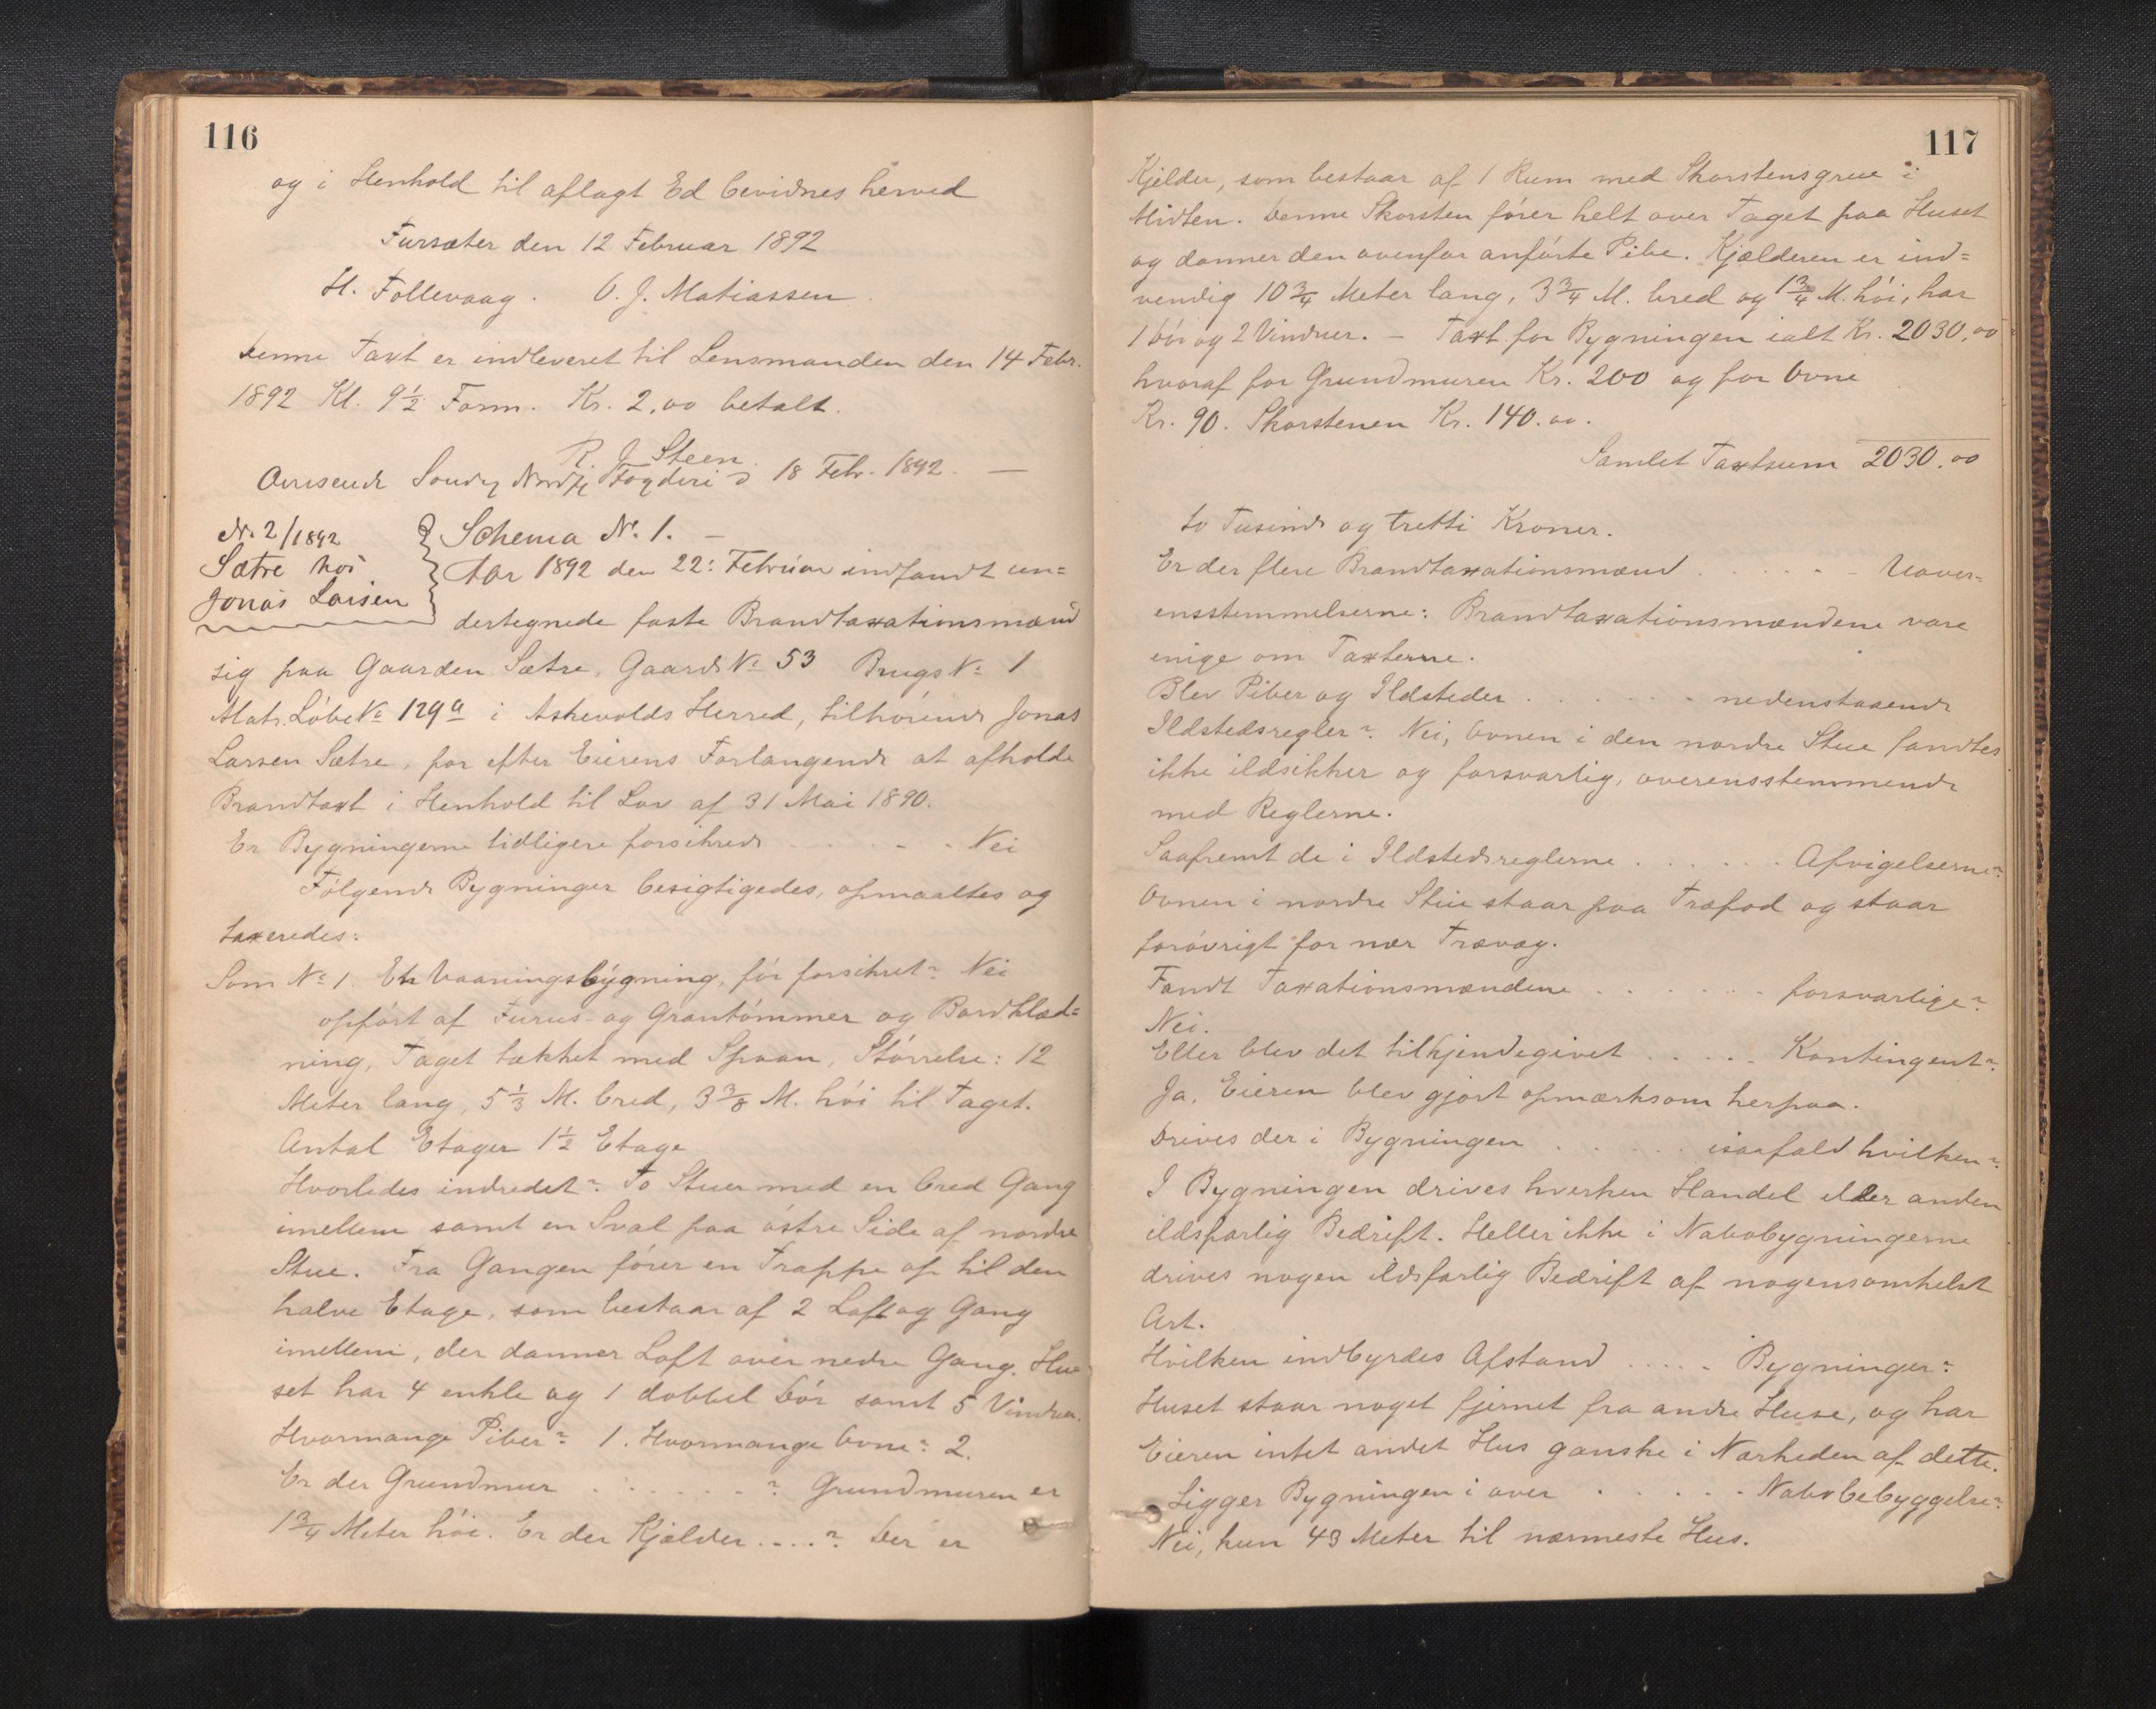 116
og i Henhold til aflagt Ed bevidnes herved
Fursæter den 12 Februar 1892
H. Follevaag. O. J. Matiassen.
Denne Taxt er indleveret til Lensmanden den 14 Febr.
1892 Kl. 9½ Form. Kr. 2,00 betalt.
R. J. Steen.
Søndre Nordfj Fogderi d 18 Febr. 1892. —
Nr. 2/1892
Sætre hos
Jonas Larsen
Schema No. 1. —
Aar 1892 den 22: Februar indfandt un=
dertegnede faste Brandtaxationsmænd
sig paa Gaarden Sætre, Gaards No 53 Brugs No 1
Matr. Løbe No 129a i Askevolds Herred, tilhørende Jonas
Larsen Sætre, for efter Eierens Forlangende at afholde
Brandtaxt i Henhold til Lov af 31 Mai 1890.
Er Bygningerne tidligere forsikrede . . . . . Nei
Følgende Bygninger besigtigedes, opmaaltes og
taxeredes:
Som No 1. En Vaaningsbygning, før forsikret? Nei
opført af Furus- og Grantømmer og Bordklæd=
ning, Taget tækket med Spaan, Størrelse: 12
Meter lang, 5⅓ M. bred, 3⅜ M. høi til Taget.
Antal Etager 1½ Etage
Hvorledes indredet? To Stuer med en bred Gang
imellem samt en Sval paa østre Side af nordre
Stue. Fra Gangen fører en Trappe op til den
halve Etage, som bestaar af 2 Loft og Gang
imellem, der danner Loft over nedre Gang. Hu
set har 4 enkle og 1 dobbel Dør samt 5 Vinduer.
Hvormange Piber? 1. Hvormange Ovne? 2.
Er der Grundmur . . . . . . ? Grundmuren er
1¾ Meter høi. Er der Kjælder . . . . ? Der er
117
Kjelder, som bestaar af 1 Rum med Skorstensgrue i
Midten. Denne Skorsten fører helt over Taget paa Huset
og danner den ovenfor anførte Pibe. Kjælderen er ind=
vendig 10¾ Meter lang, 3¾ M. bred og 1¾ M. høi, har
1 Dør og 2 Vinduer. — Taxt for Bygningen ialt Kr. 2030,00
hvoraf for Grundmuren Kr. 200 og for Ovne
Kr. 90. Skorstenen Kr. 140.00.
Samlet Taxtsum 2030.00
to Tusinde og tretti Kroner.
Er der flere Brandtaxationsmænd . . . . . Uover-
ensstemmelserne: Brandtaxationsmændene vare
enige om Taxterne.
Blev Piber og Ildsteder . . . . . . nedenstaaende
Ildstedsregler? Nei, Ovnen i den nordre Stue fandtes
ikke ildsikker og forsvarlig, overensstemmende
med Reglerne.
Saafremt de i Ildstedsreglerne . . . . . . Afvigelserne?
Ovnen i nordre Stue staar paa Træfod og staar
forøvrigt for nær Trævæg.
Fandt Taxationsmændene . . . . . . forsvarlige?
Nei.
Eller blev det tilkjendegivet . . . . . Kontingent?
Ja, Eieren blev gjort opmærksom herpaa.
Drives der i Bygningen . . . . . isaafald hvilken?
I Bygningen drives hverken Handel eller anden
ildsfarlig Bedrift. Heller ikke i Nabobygningerne
drives nogen ildsfarlig Bedrift af nogensomhelst
Art.
Hvilken indbyrdes Afstand . . . . . Bygninger?
Huset staar noget fjernet fra andre Huse, og har
Eieren intet andet Hus ganske i Nærheden af dette.
Ligger Bygningen i over . . . . . Nabobebyggelse?
Nei, kun 43 Meter til nærmeste Hus.